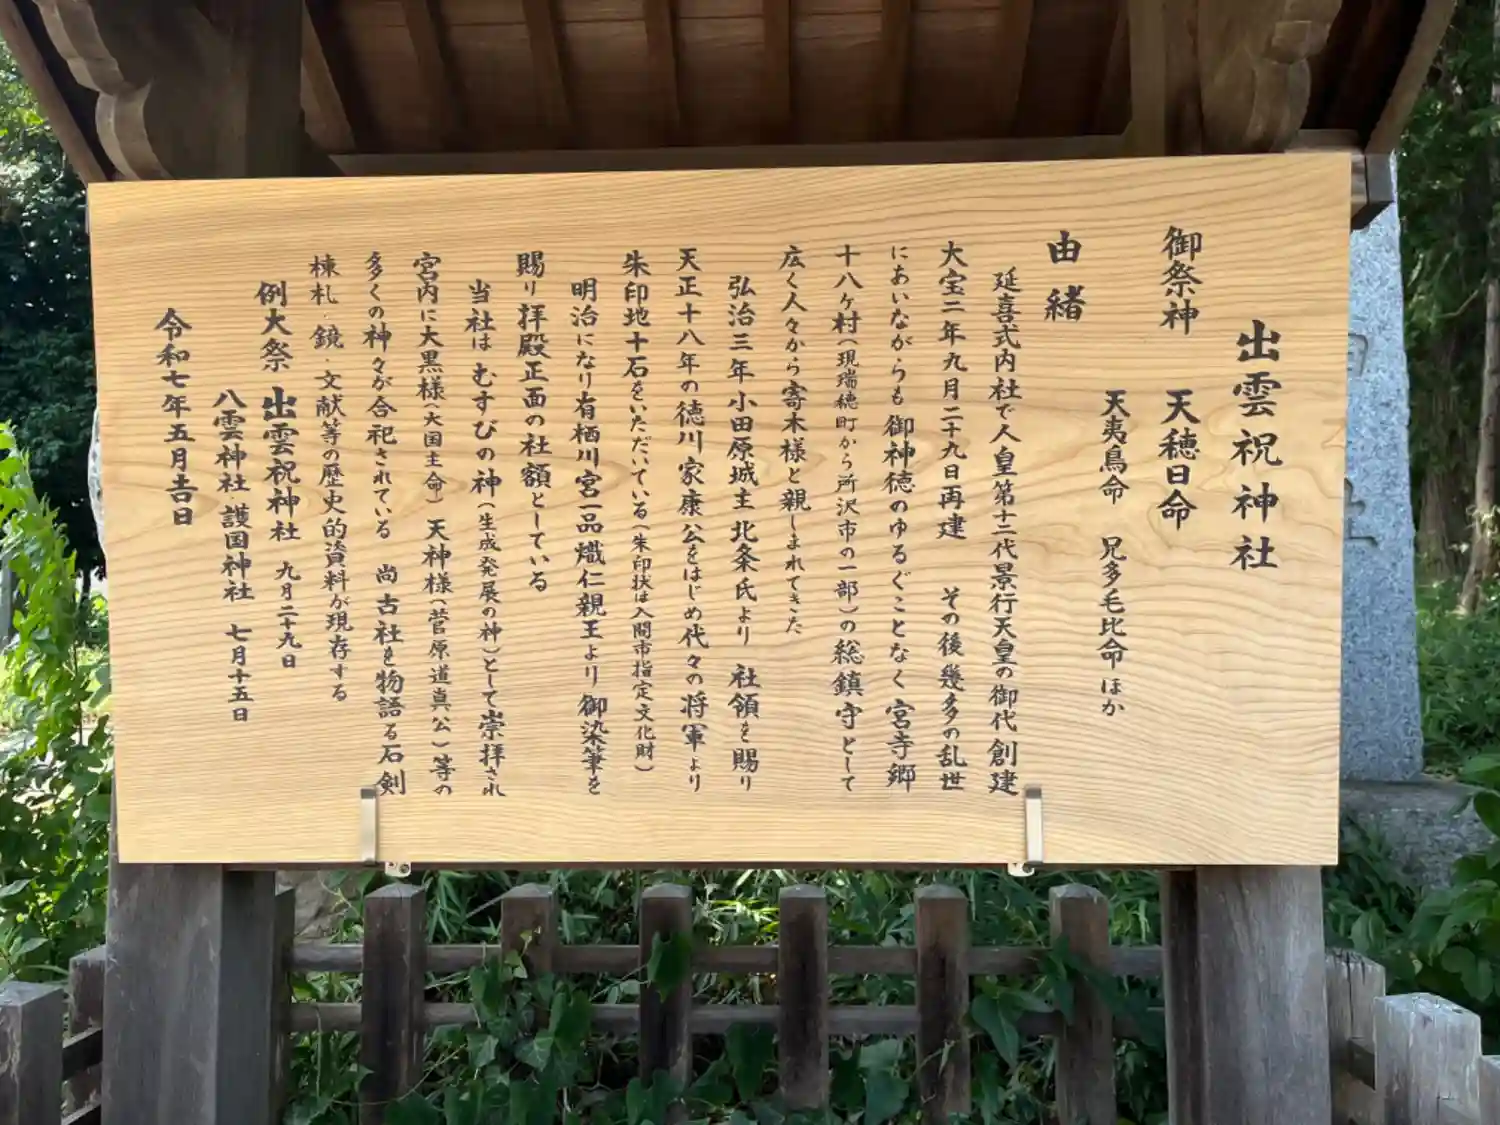 出雲祝神社
御祭神　天穂日命
天夷鳥命　兄多毛比命　ほか
由緒
延喜式内社で人皇第十二代景行天皇の御代　創建
大宝二年九月二十九日再建　その後幾多の乱世
にあいながらも　御神徳のゆるぐことなく　宮寺郷
十八ヶ村（現瑞穂町から所沢市の一部）の総鎮守として
広く人々から寄木様と親しまれてきた
弘治三年小田原城主　北条氏より　社領を賜り
天正十八年の徳川家康公をはじめ代々の将軍より
朱印地十石をいただいている（朱印状は入間市指定文化財）
明治になり有栖川宮一品熾仁親王より　御染筆を
賜り拝殿正面の社額としている
当社は　むすびの神（生成発展の神）として崇拝され
宮内に大黒様（大国主命）　天神様（菅原道真公）等の
多くの神々が合祀されている　尚　古社を物語る石剣
棟札・鏡・文献等の歴史的資料が現存する
例大祭　出雲祝神社　九月二十九日
八雲神社　護国神社　七月十五日
令和七年五月吉日